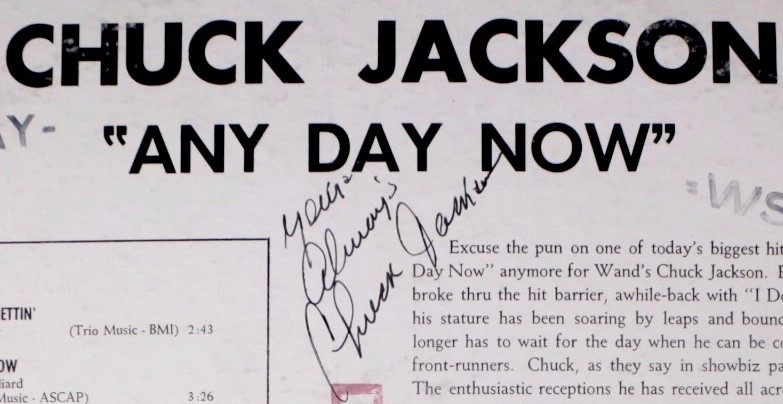 CHUCK JACKSON
"ANY DAY NOW"
AY-
WS
Yours
Always
Chuck Jackson
ETTIN'
(Trio Music - BMI) 2:43
OW
liard
Music - ASCAP) 3:26
Excuse the pun on one of today's biggest hit
Day Now" anymore for Wand's Chuck Jackson. E
broke thru the hit barrier, awhile-back with "I Do
his stature has been soaring by leaps and bound
longer has to wait for the day when he can be co
front-runners. Chuck, as they say in showbiz pa
The enthusiastic receptions he has received all acr